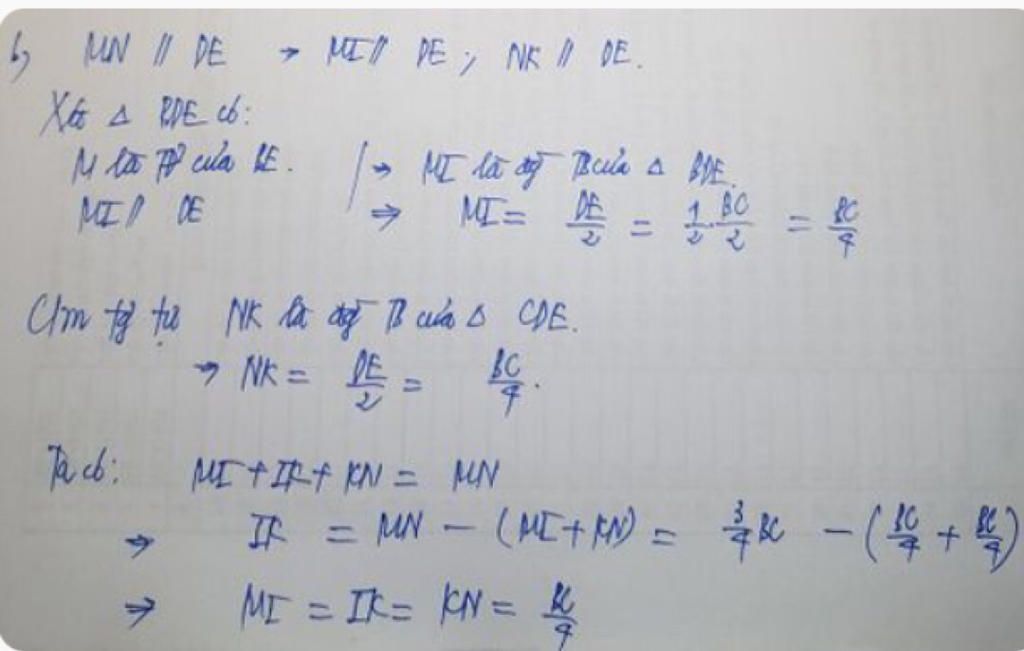 b, MN // DE → MI // DE ; NK // DE.
Xét △ BDE có:
M là TĐ của BE. → MI là đg TB của △ BDE.
MI // DE ⇒ MI = DE/2 = 1/2 . BC/2 = BC/4
C/m tg tự NK là đg TB của △ CDE.
→ NK = DE/2 = BC/4.
Ta có: MI + IK + KN = MN
⇒ IK = MN - (MI + KN) = 3/4 BC - (BC/4 + BC/4)
⇒ MI = IK = KN = BC/4